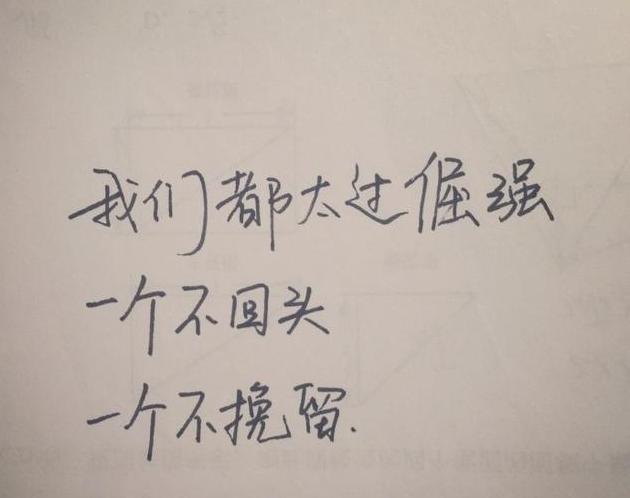 我们都太过倔强
一个不回头
一个不挽留.